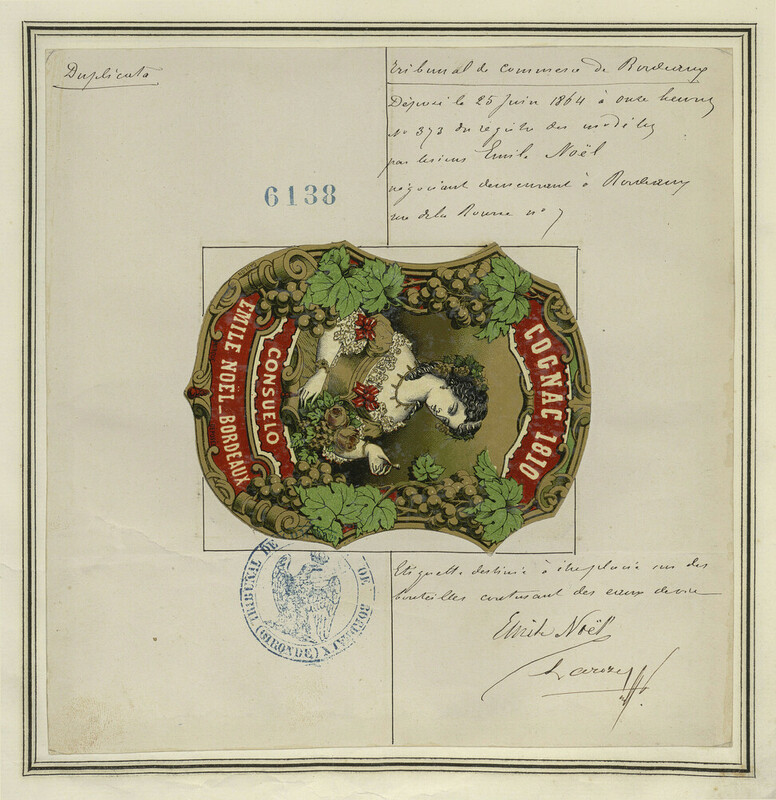 Duplicata
Tribunal de Commerce de Bordeaux
Déposé le 25 Juin 1864 à onze heures
No 373 du registre des modèles
par lesieur Emile Noël
négociant demeurant à Bordeaux
rue de la Bourse no 7
6138
COGNAC 1810
CONSUELO
EMILE NOËL_BORDEAUX
TRIBUNAL DE DE BORDEAUX
(GIRONDE)
Etiquette destinée à être placée sur des
bouteilles contenant des eaux de vie
Emile Noël